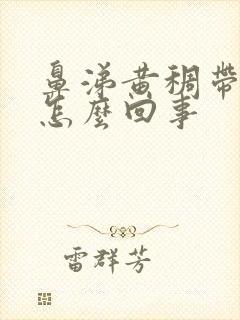 鼻涕黄稠帶
怎麼回事
雷群芳